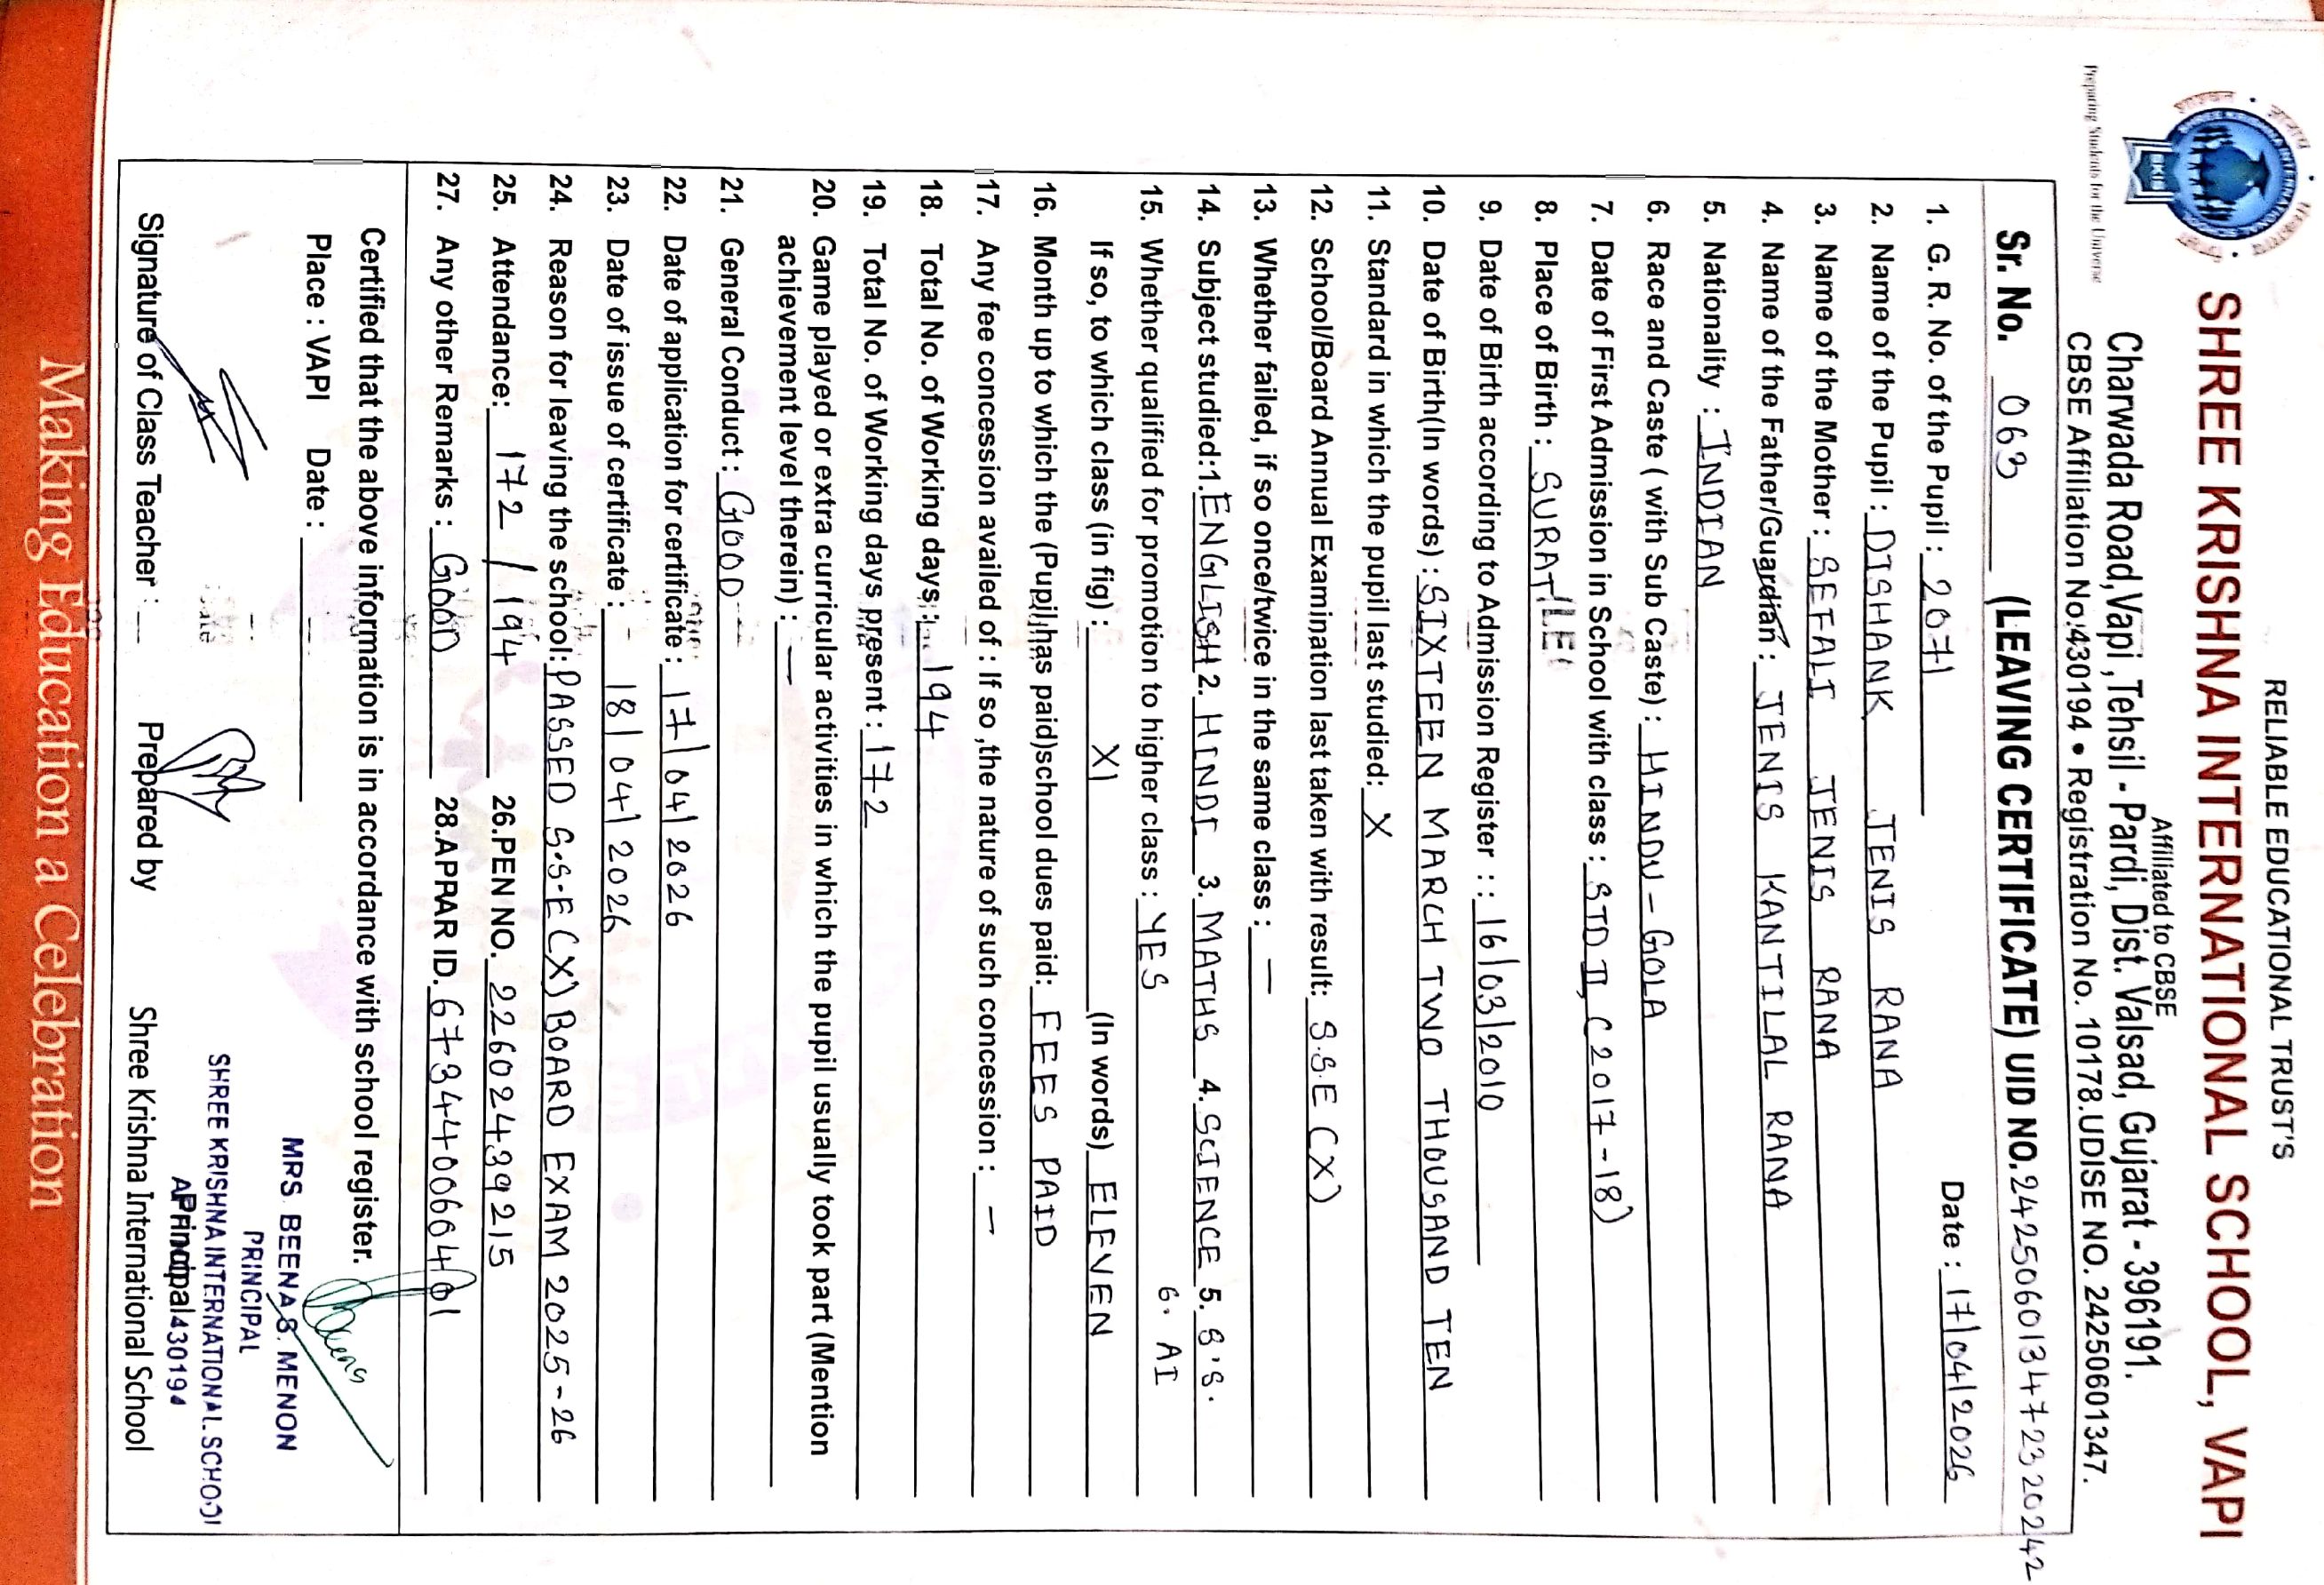 RELIABLE EDUCATIONAL TRUST'S
SHREE KRISHNA INTERNATIONAL SCHOOL, VAPI
Affiliated to CBSE
Charwada Road, Vapi ,Tehsil - Pardi, Dist. Valsad, Gujarat - 396191.
CBSE Affiliation No:430194 • Registration No. 10178.UDISE NO. 24250601347.
Preparing Students for the Universe
Sr. No. 063 (LEAVING CERTIFICATE) UID NO. 242506013472320242
Date : 17/04/2026
1. G. R. No. of the Pupil : 2071
2. Name of the Pupil : DISHANK JENIS RANA
3. Name of the Mother : SEFALI JENIS RANA
4. Name of the Father/Guardian : JENIS KANTILAL RANA
5. Nationality : INDIAN
6. Race and Caste ( with Sub Caste) : HINDU - GOLA
7. Date of First Admission in School with class : STD II, ( 2017-18)
8. Place of Birth : SURAT
9. Date of Birth according to Admission Register : : 16/03/2010
10. Date of Birth(In words) : SIXTEEN MARCH TWO THOUSAND TEN
11. Standard in which the pupil last studied: X
12. School/Board Annual Examination last taken with result: S.S.E (X)
13. Whether failed, if so once/twice in the same class : —
14. Subject studied:1. ENGLISH 2. HINDI 3. MATHS 4. SCIENCE 5. S.S.
6. AI
15. Whether qualified for promotion to higher class : YES
If so, to which class (in fig) : XI (In words) ELEVEN
16. Month up to which the (Pupil has paid)school dues paid: FEES PAID
17. Any fee concession availed of : If so ,the nature of such concession : —
18. Total No. of Working days : 194
19. Total No. of Working days present : 172
20. Game played or extra curricular activities in which the pupil usually took part (Mention
achievement level therein) : —
21. General Conduct : GOOD
22. Date of application for certificate : 17/04/2026
23. Date of issue of certificate : 18/04/2026
24. Reason for leaving the school: PASSED S.S.E (X) BOARD EXAM 2025-26
25. Attendance: 172 / 194 26.PEN NO. 22602439215
27. Any other Remarks : GOOD 28.APPAR ID.
Certified that the above information is in accordance with school register.
Place : VAPI Date :
MRS. BEENA S. MENON
PRINCIPAL
SHREE KRISHNA INTERNATIONAL SCHOOL
Principal 430194
Signature of Class Teacher : Prepared by Shree Krishna International School
Making Education a Celebration